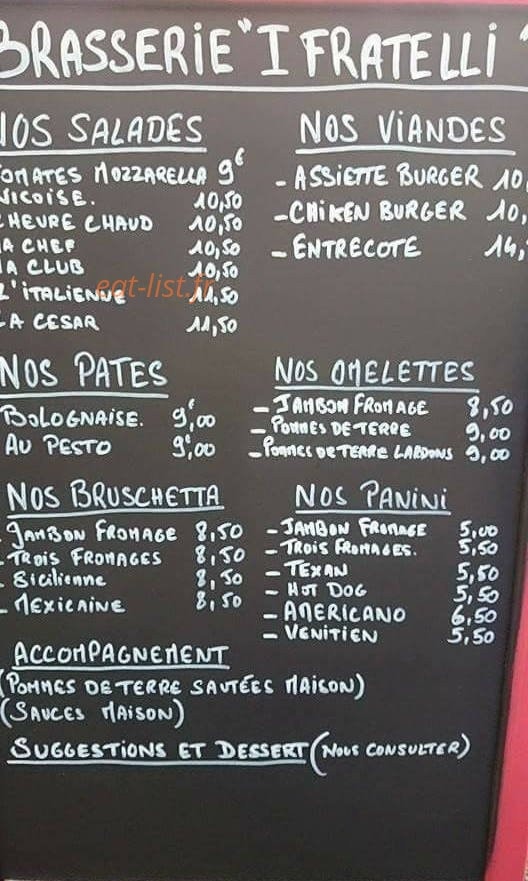 BRASSERIE "I FRATELLI"
NOS SALADES
TOMATES MOZZARELLA 9€
NICOISE. 10,50
CHEVRE CHAUD 10,50
LA CHEF 10,50
LA CLUB 10,50
L'ITALIENNE 11,50
LA CESAR 11,50
eat-list.fr
NOS VIANDES
- ASSIETTE BURGER 10,
- CHIKEN BURGER 10,
- ENTRECOTE 14,
NOS PATES
BOLOGNAISE. 9€,00
AU PESTO 9€,00
NOS OMELETTES
- JAMBON FROMAGE 8,50
- POMMES DE TERRE 9,00
- POMMES DE TERRE LARDONS 9,00
NOS BRUSCHETTA
- JAMBON FROMAGE 8,50
- TROIS FROMAGES 8,50
- Sicilienne 8,50
- MEXICAINE 8,50
NOS PANINI
- JAMBON FROMAGE 5,00
- TROIS FROMAGES. 5,50
- TEXAN 5,50
- HOT DOG 5,50
- AMERICANO 6,50
- VENITIEN 5,50
ACCOMPAGNEMENT
(POMMES DE TERRE SAUTÉES MAISON)
(SAUCES MAISON)
SUGGESTIONS ET DESSERT (NOUS CONSULTER)